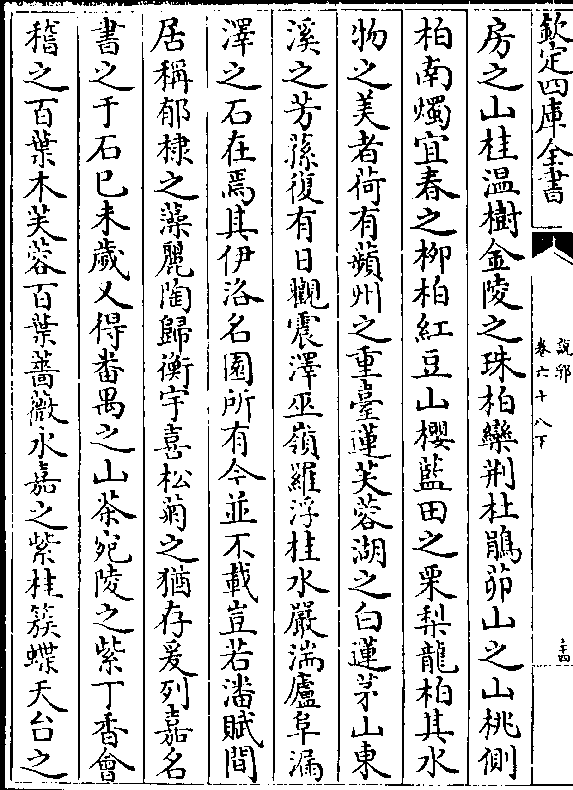 欽定四庫全書
說郛
卷六十八下
三十四
房之山桂温樹金陵之珠柏欒荆杜鵑茆山之山桃側
柏南燭宜春之栁柏紅豆山櫻藍田之栗梨龍柏其水
物之美者荷有蘋州之重臺蓮芙蓉湖之白蓮茅山東
溪之芳蓀復有日觀震澤巫嶺羅浮桂水嚴湍廬阜漏
澤之石在焉其伊洛名園所有今並不載豈若潘賦間
居稱郁棣之藻麗陶歸衡宇喜松菊之猶存爰列嘉名
書之于石已未歲乂得番禺之山茶宛陵之紫丁香㑹
稽之百葉木芙蓉百葉薔薇永嘉之紫桂簇蝶天台之